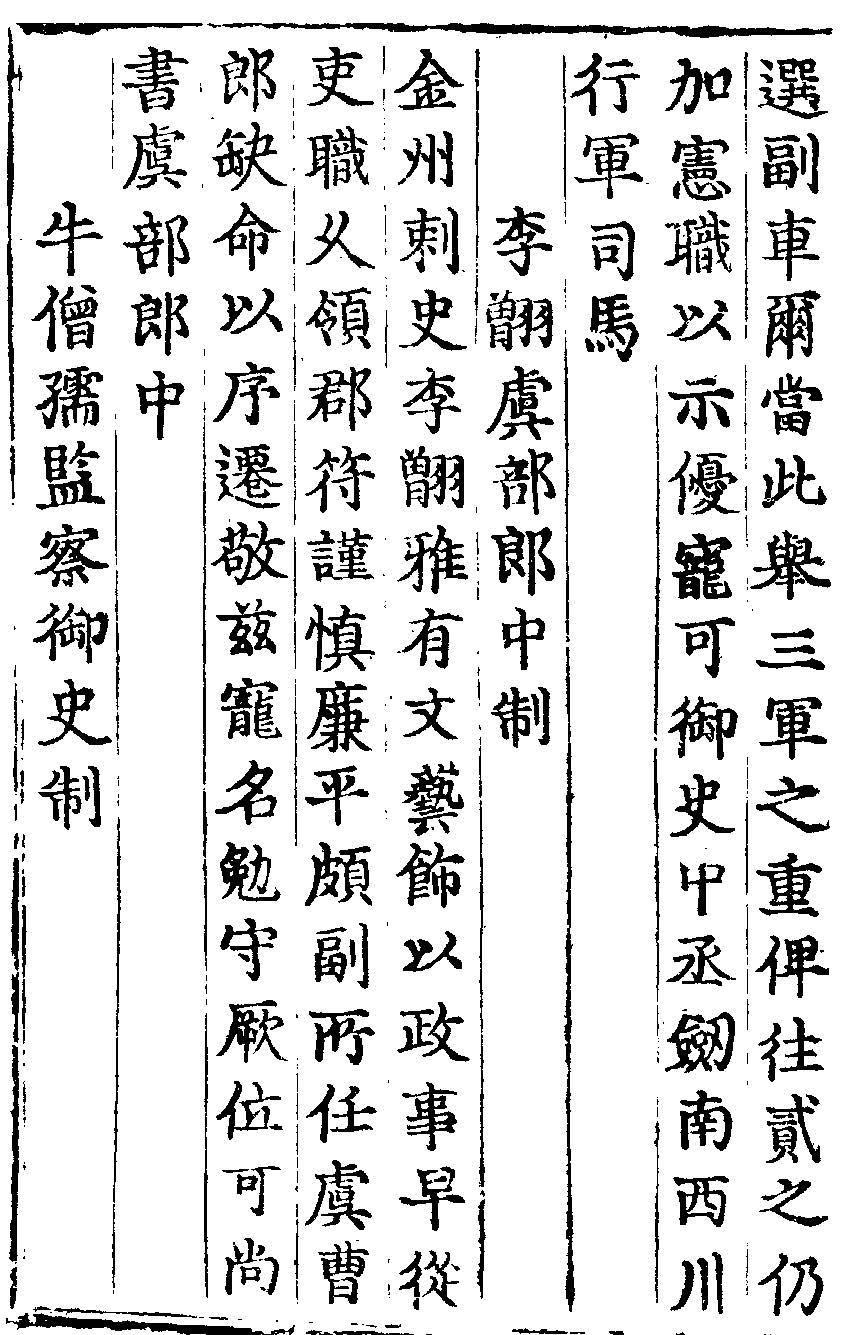 選副車爾當此舉三軍之重俾往貳之仍
加憲職以示優寵可御史中丞劒南西川
行軍司馬
李翾虞部郎中制
金州刺史李翾雅有文藝飾以政事早從
吏職乆領郡符謹慎廉平頗副所任虞曹
郎缺命以序遷敬兹寵名勉守厥位可尚
書虞部郎中
牛僧孺監察御史制